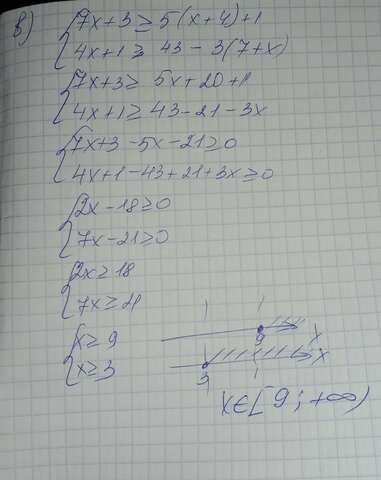 в) { 7x+3 ≥ 5(x+4)+1
4x+1 ≥ 43 - 3(7+x)
{ 7x+3 ≥ 5x+20+1
4x+1 ≥ 43-21-3x
{ 7x+3-5x-21≥0
4x+1-43+21+3x≥0
{ 2x-18≥0
7x-21≥0
{ 2x≥18
7x≥21
{ x≥9
x≥3
9 x
3 x
x∈[9; +∞)